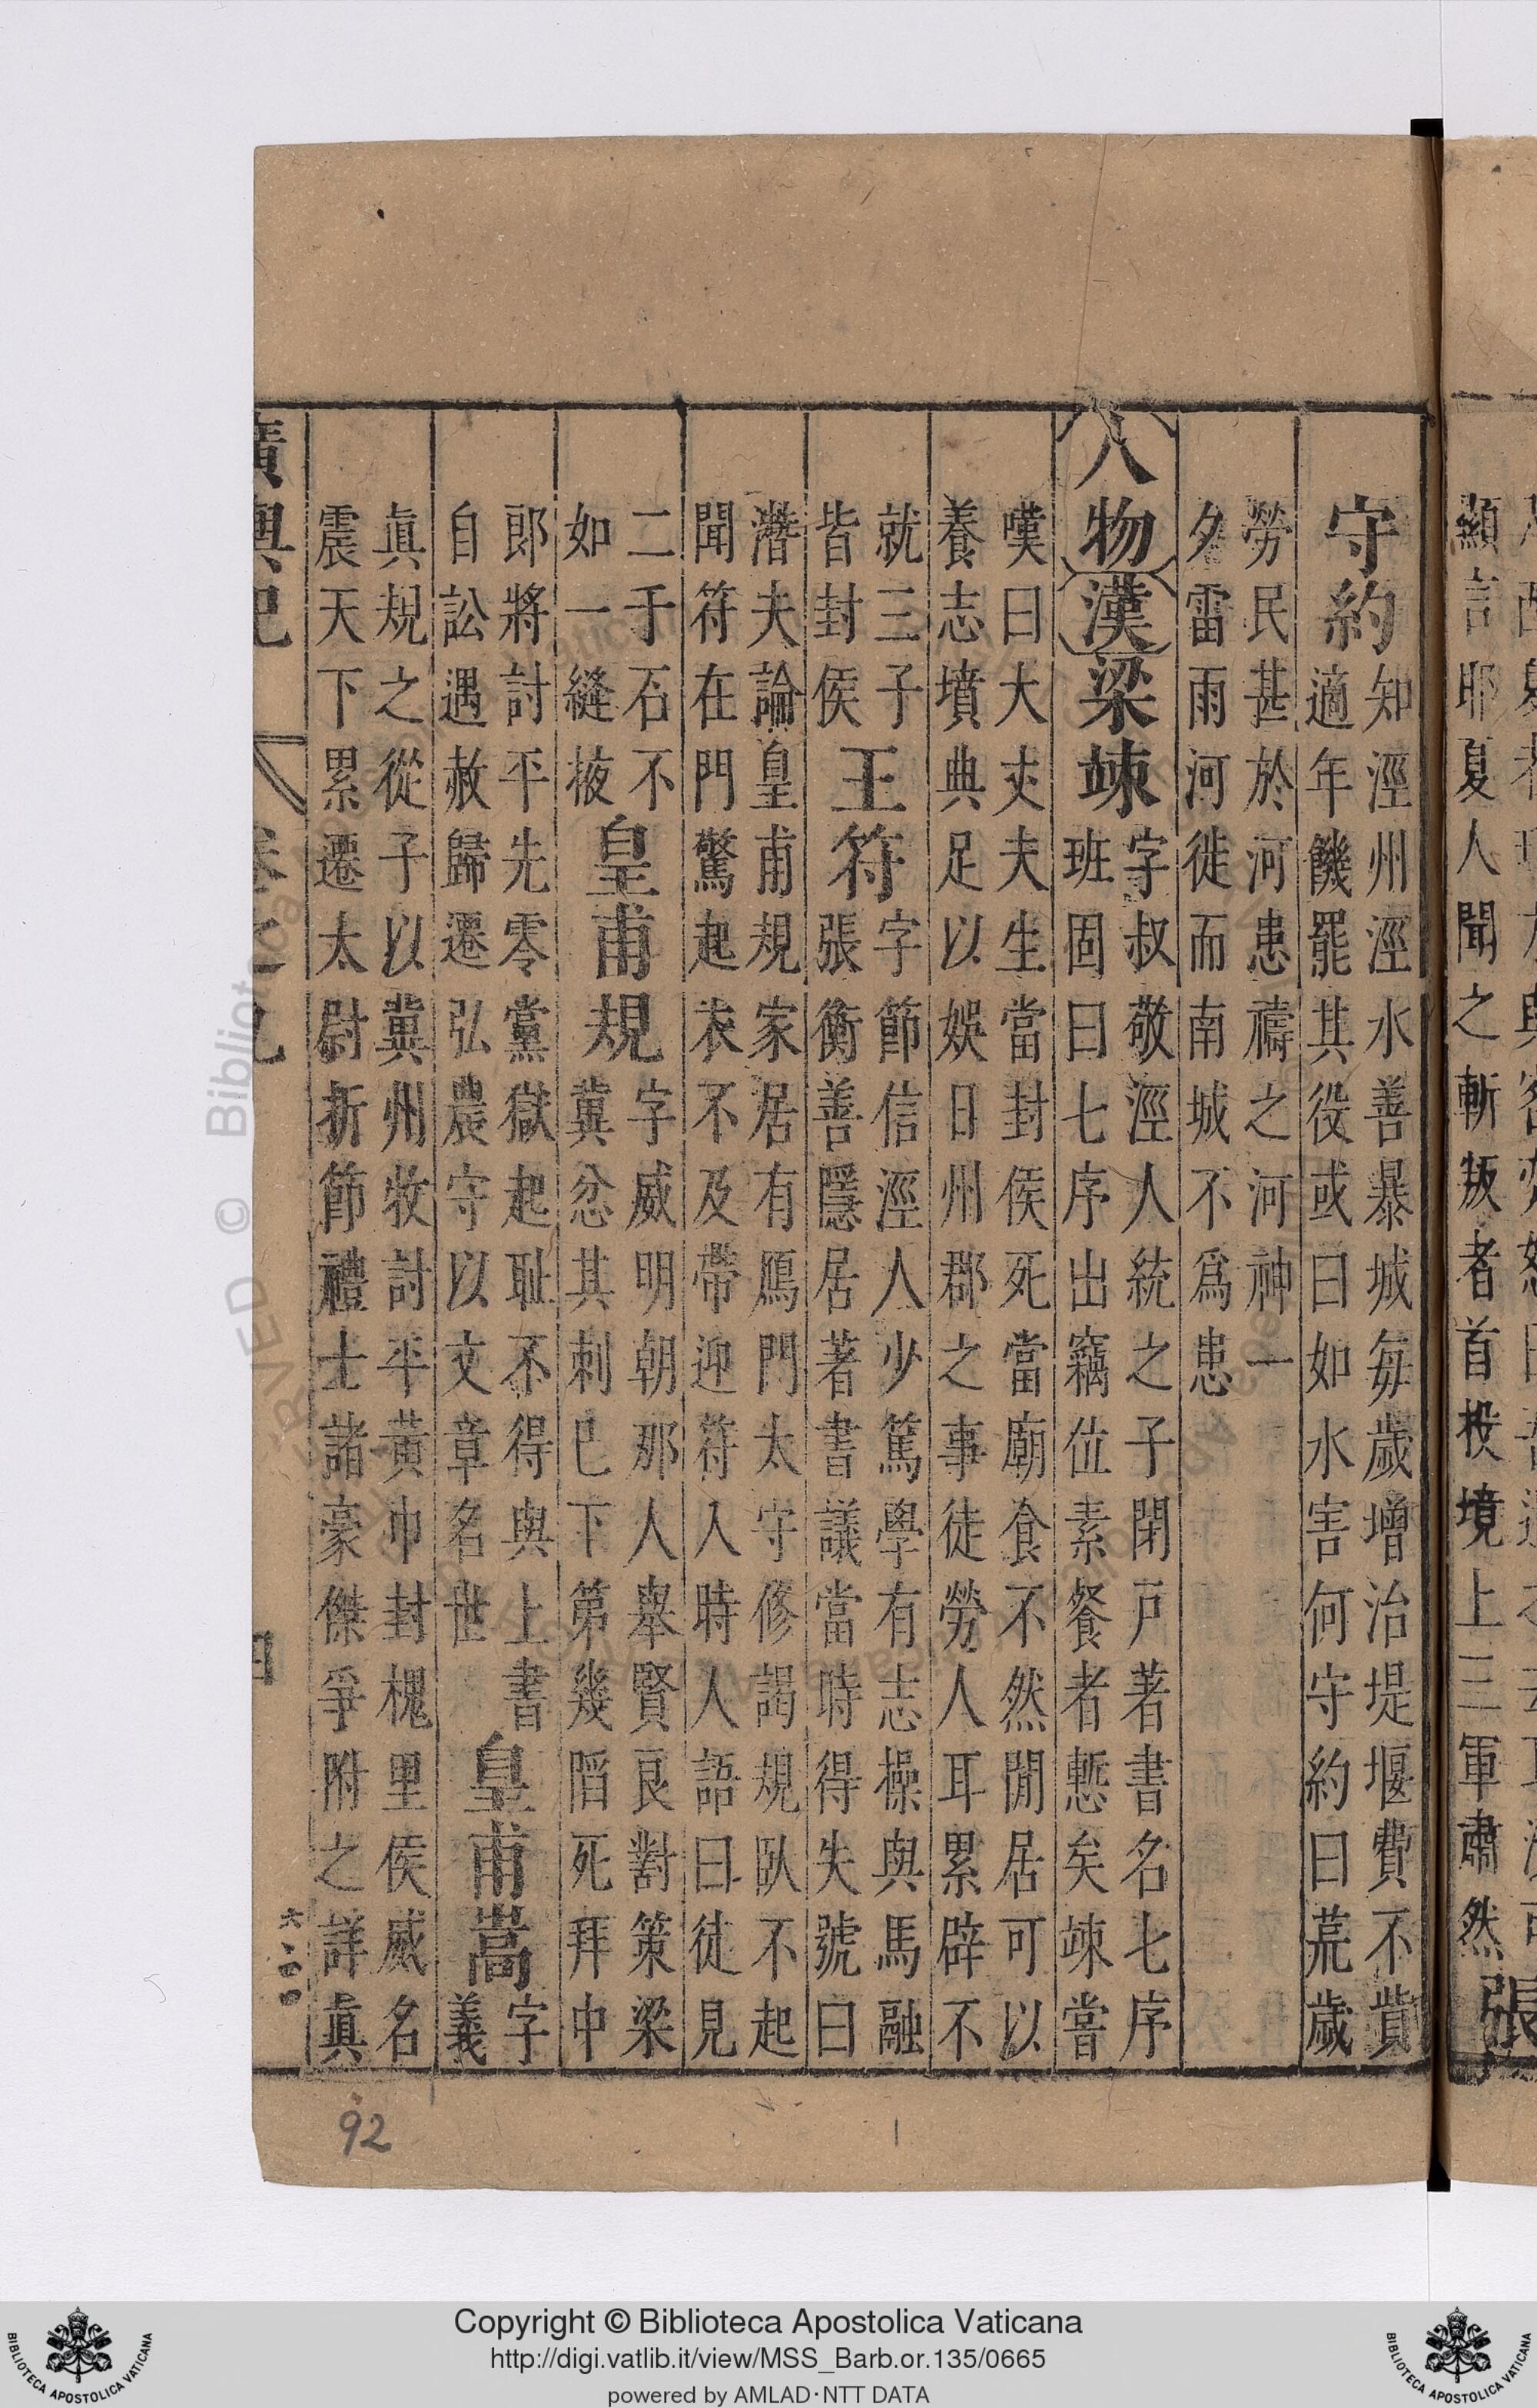 顯言耶夏人聞之斬叛者首投境上三軍肅然張
守約知涇州涇水善暴城每歲增治堤堰費不貲
適年饑罷其役或曰如水害何守約曰荒歲
勞民甚於河患禱之河神一
夕雷雨河徙而南城不爲患
人物漢梁竦字叔敬涇人統之子閉戸著書名七序
班固曰七序出竊位素餐者慙矣竦嘗
嘆曰大丈夫生當封侯死當廟食不然閒居可以
養志墳典足以娛日州郡之事徒勞人耳累辟不
就三子
皆封侯王符字節信涇人少篤學有志操與馬融
張衡善隱居著書議當時得失號曰
潛夫論皇甫規家居有鴈門太守修謁規臥不起
聞符在門驚起衣不及帶迎符入時人語曰徒見
二千石不
如一縫掖皇甫規字威明朝那人舉賢良對策梁
冀忿其刺已下第幾䧟死拜中
郎將討平先零黨獄起耻不得與上書
自訟遇赦歸遷弘農守以文章名世皇甫嵩字
義
眞規之從子以冀州牧討平黃巾封槐里侯威名
震天下累遷太尉折節禮士諸豪傑爭附之詳眞
廣輿記
六二四
92
Copyright © Biblioteca Apostolica Vaticana
http://digi.vatlib.it/view/MSS_Barb.or.135/0665
powered by AMLAD·NTT DATA
BIBLIOTECA APOSTOLICA VATICANA
BIBLIOTECA APOSTOLICA VATICANA